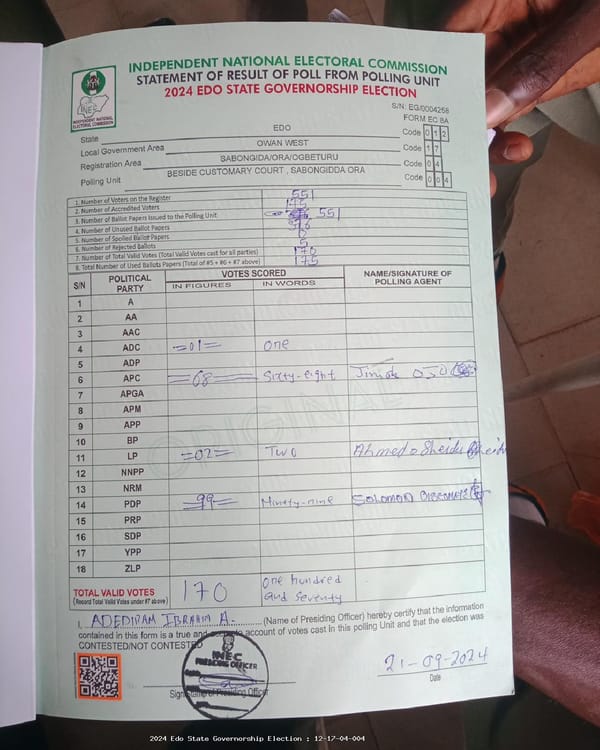 INDEPENDENT NATIONAL ELECTORAL COMMISSION
STATEMENT OF RESULT OF POLL FROM POLLING UNIT
2024 EDO STATE GOVERNORSHIP ELECTION
INEC
INDEPENDENT NATIONAL ELECTORAL COMMISSION
S/N: EG/0004258
FORM EC 8A
State EDO Code 0 1 2
Local Government Area OWAN WEST Code 1 7
Registration Area SABONGIDA/ORA/OGBETURU Code 0 4
Polling Unit BESIDE CUSTOMARY COURT , SABONGIDDA ORA Code 0 0 4
1. Number of Voters on the Register 551
2. Number of Accredited Voters 175
3. Number of Ballot Papers Issued to the Polling Unit 551
4. Number of Unused Ballot Papers
5. Number of Spoiled Ballot Papers 0
6. Number of Rejected Ballots 5
7. Number of Total Valid Votes (Total Valid Votes cast for all parties) 170
8. Total Number of Used Ballots Papers (Total of #5 + #6 + #7 above) 175
S/N POLITICAL PARTY VOTES SCORED NAME/SIGNATURE OF POLLING AGENT
IN FIGURES IN WORDS
1 A
2 AA
3 AAC
4 ADC =01= One
5 ADP
6 APC =68= Sixty-eight
7 APGA
8 APM
9 APP
10 BP
11 LP =02= Two Ahmed o Sheidu
12 NNPP
13 NRM
14 PDP =99= Ninety-nine SOLOMON
15 PRP
16 SDP
17 YPP
18 ZLP
ORIGINAL
TOTAL VALID VOTES 170 One hundred and seventy
(Record Total Valid Votes under #7 above)
I, ADEDIRAN IBRAHIM A. (Name of Presiding Officer) hereby certify that the information
contained in this form is a true and account of votes cast in this polling Unit and that the election was
CONTESTED/NOT CONTESTED
INEC
PRESIDING OFFICER
Signature of Presiding Officer
21-09-2024
Date
2024 Edo State Governorship Election : 12-17-04-004